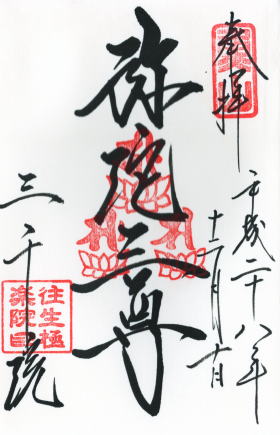 奉拝
平成二十八年
十二月十日
弥陀三尊
三千院
往生極
楽院印